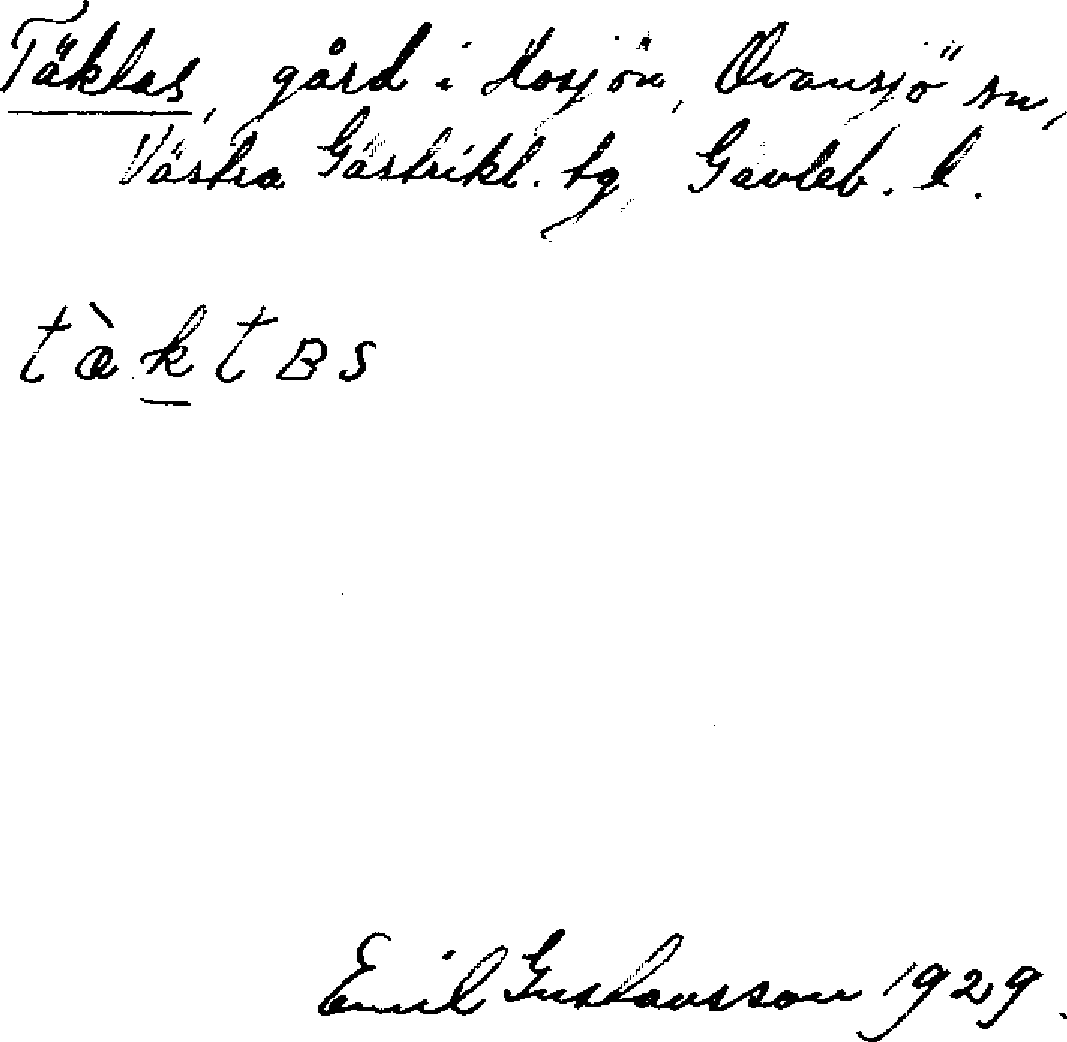 Täktas, gård i Hosjön, Ovansjö sn,
Västra Gästrikl. tg Gävleb. l.
tàktBS
Emil Gustavsson 1929.